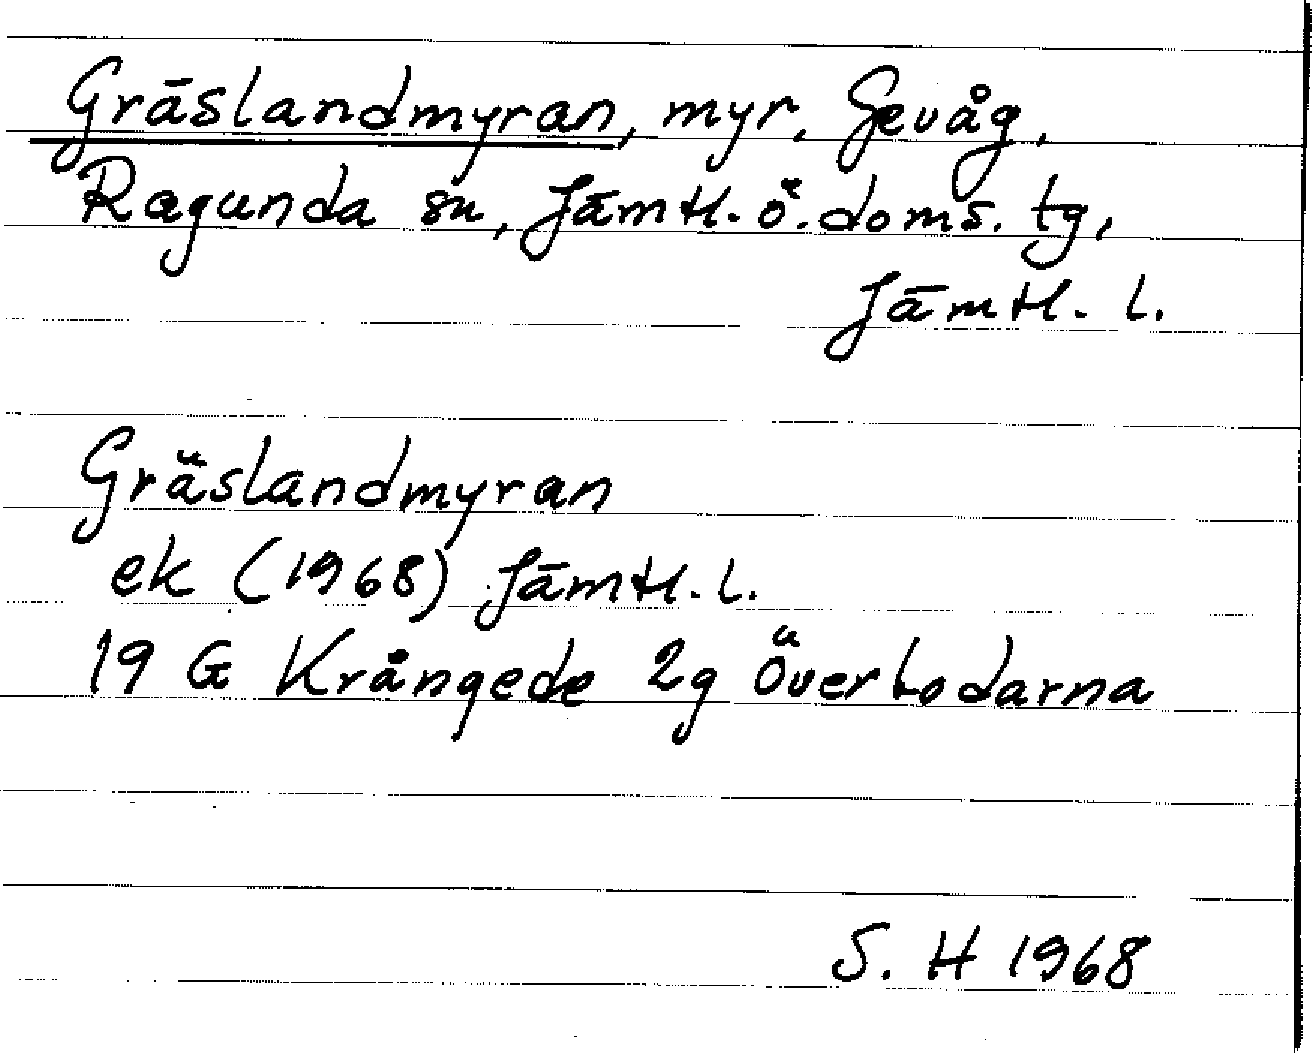 Gräslandmyran, myr, Gevåg,
Ragunda sn, Jämtl. ö. doms. tg,
Jämtl. l.
Gräslandmyran
ek (1968) Jämtl. l.
19 G Krångede 2g Överbodarna
S. H 1968